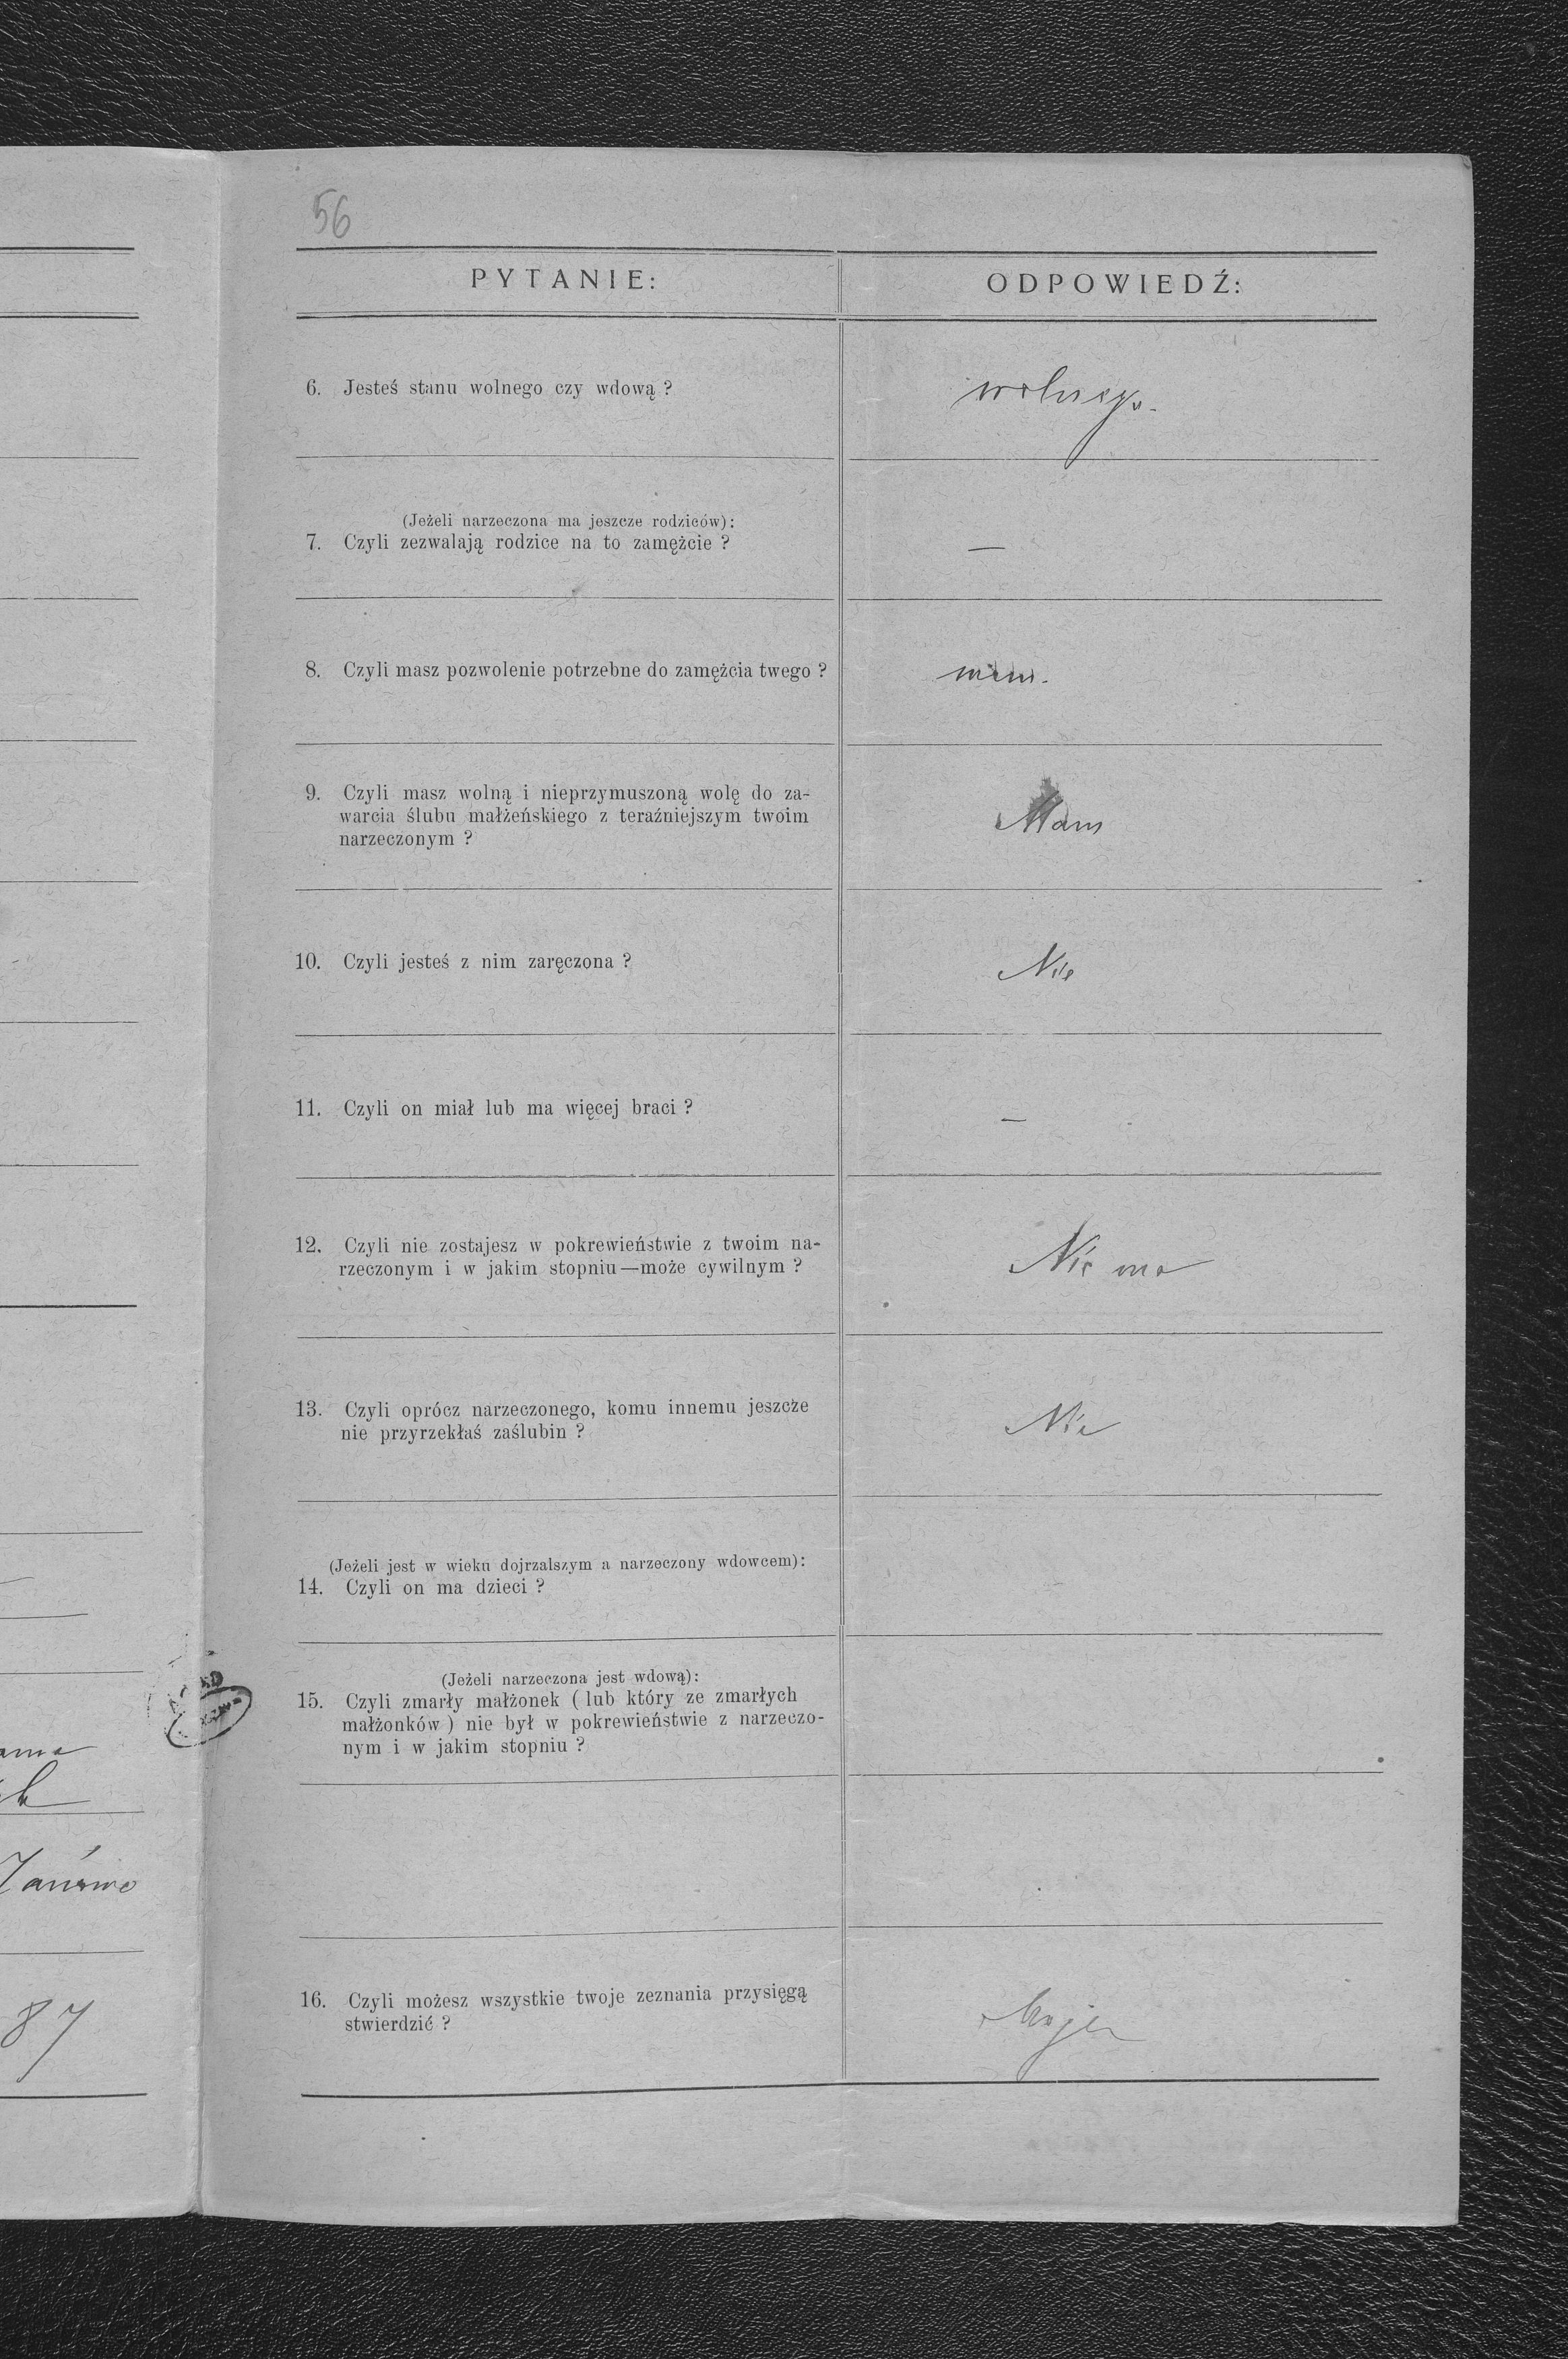 56
PYTANIE:
ODPOWIEDŹ:
6. Jesteś stanu wolnego czy wdową ?
wolnego.
(Jeżeli narzeczona ma jeszcze rodziców):
7. Czyli zezwalają rodzice na to zamężcie ?
—
8. Czyli masz pozwolenie potrzebne do zamężcia twego ?
mam.
9. Czyli masz wolną i nieprzymuszoną wolę do za-
warcia ślubu małżeńskiego z teraźniejszym twoim
narzeczonym ?
Mam
10. Czyli jesteś z nim zaręczona ?
Nie
11. Czyli on miał lub ma więcej braci ?
—
12. Czyli nie zostajesz w pokrewieństwie z twoim na-
rzeczonym i w jakim stopniu—może cywilnym ?
Nie ma
13. Czyli oprócz narzeczonego, komu innemu jeszcze
nie przyrzekłaś zaślubin ?
Nie
(Jeżeli jest w wieku dojrzalszym a narzeczony wdowcem):
14. Czyli on ma dzieci ?
(Jeżeli narzeczona jest wdową):
15. Czyli zmarły małżonek ( lub który ze zmarłych
małżonków ) nie był w pokrewieństwie z narzeczo-
nym i w jakim stopniu ?
16. Czyli możesz wszystkie twoje zeznania przysięgą
stwierdzić ?
87